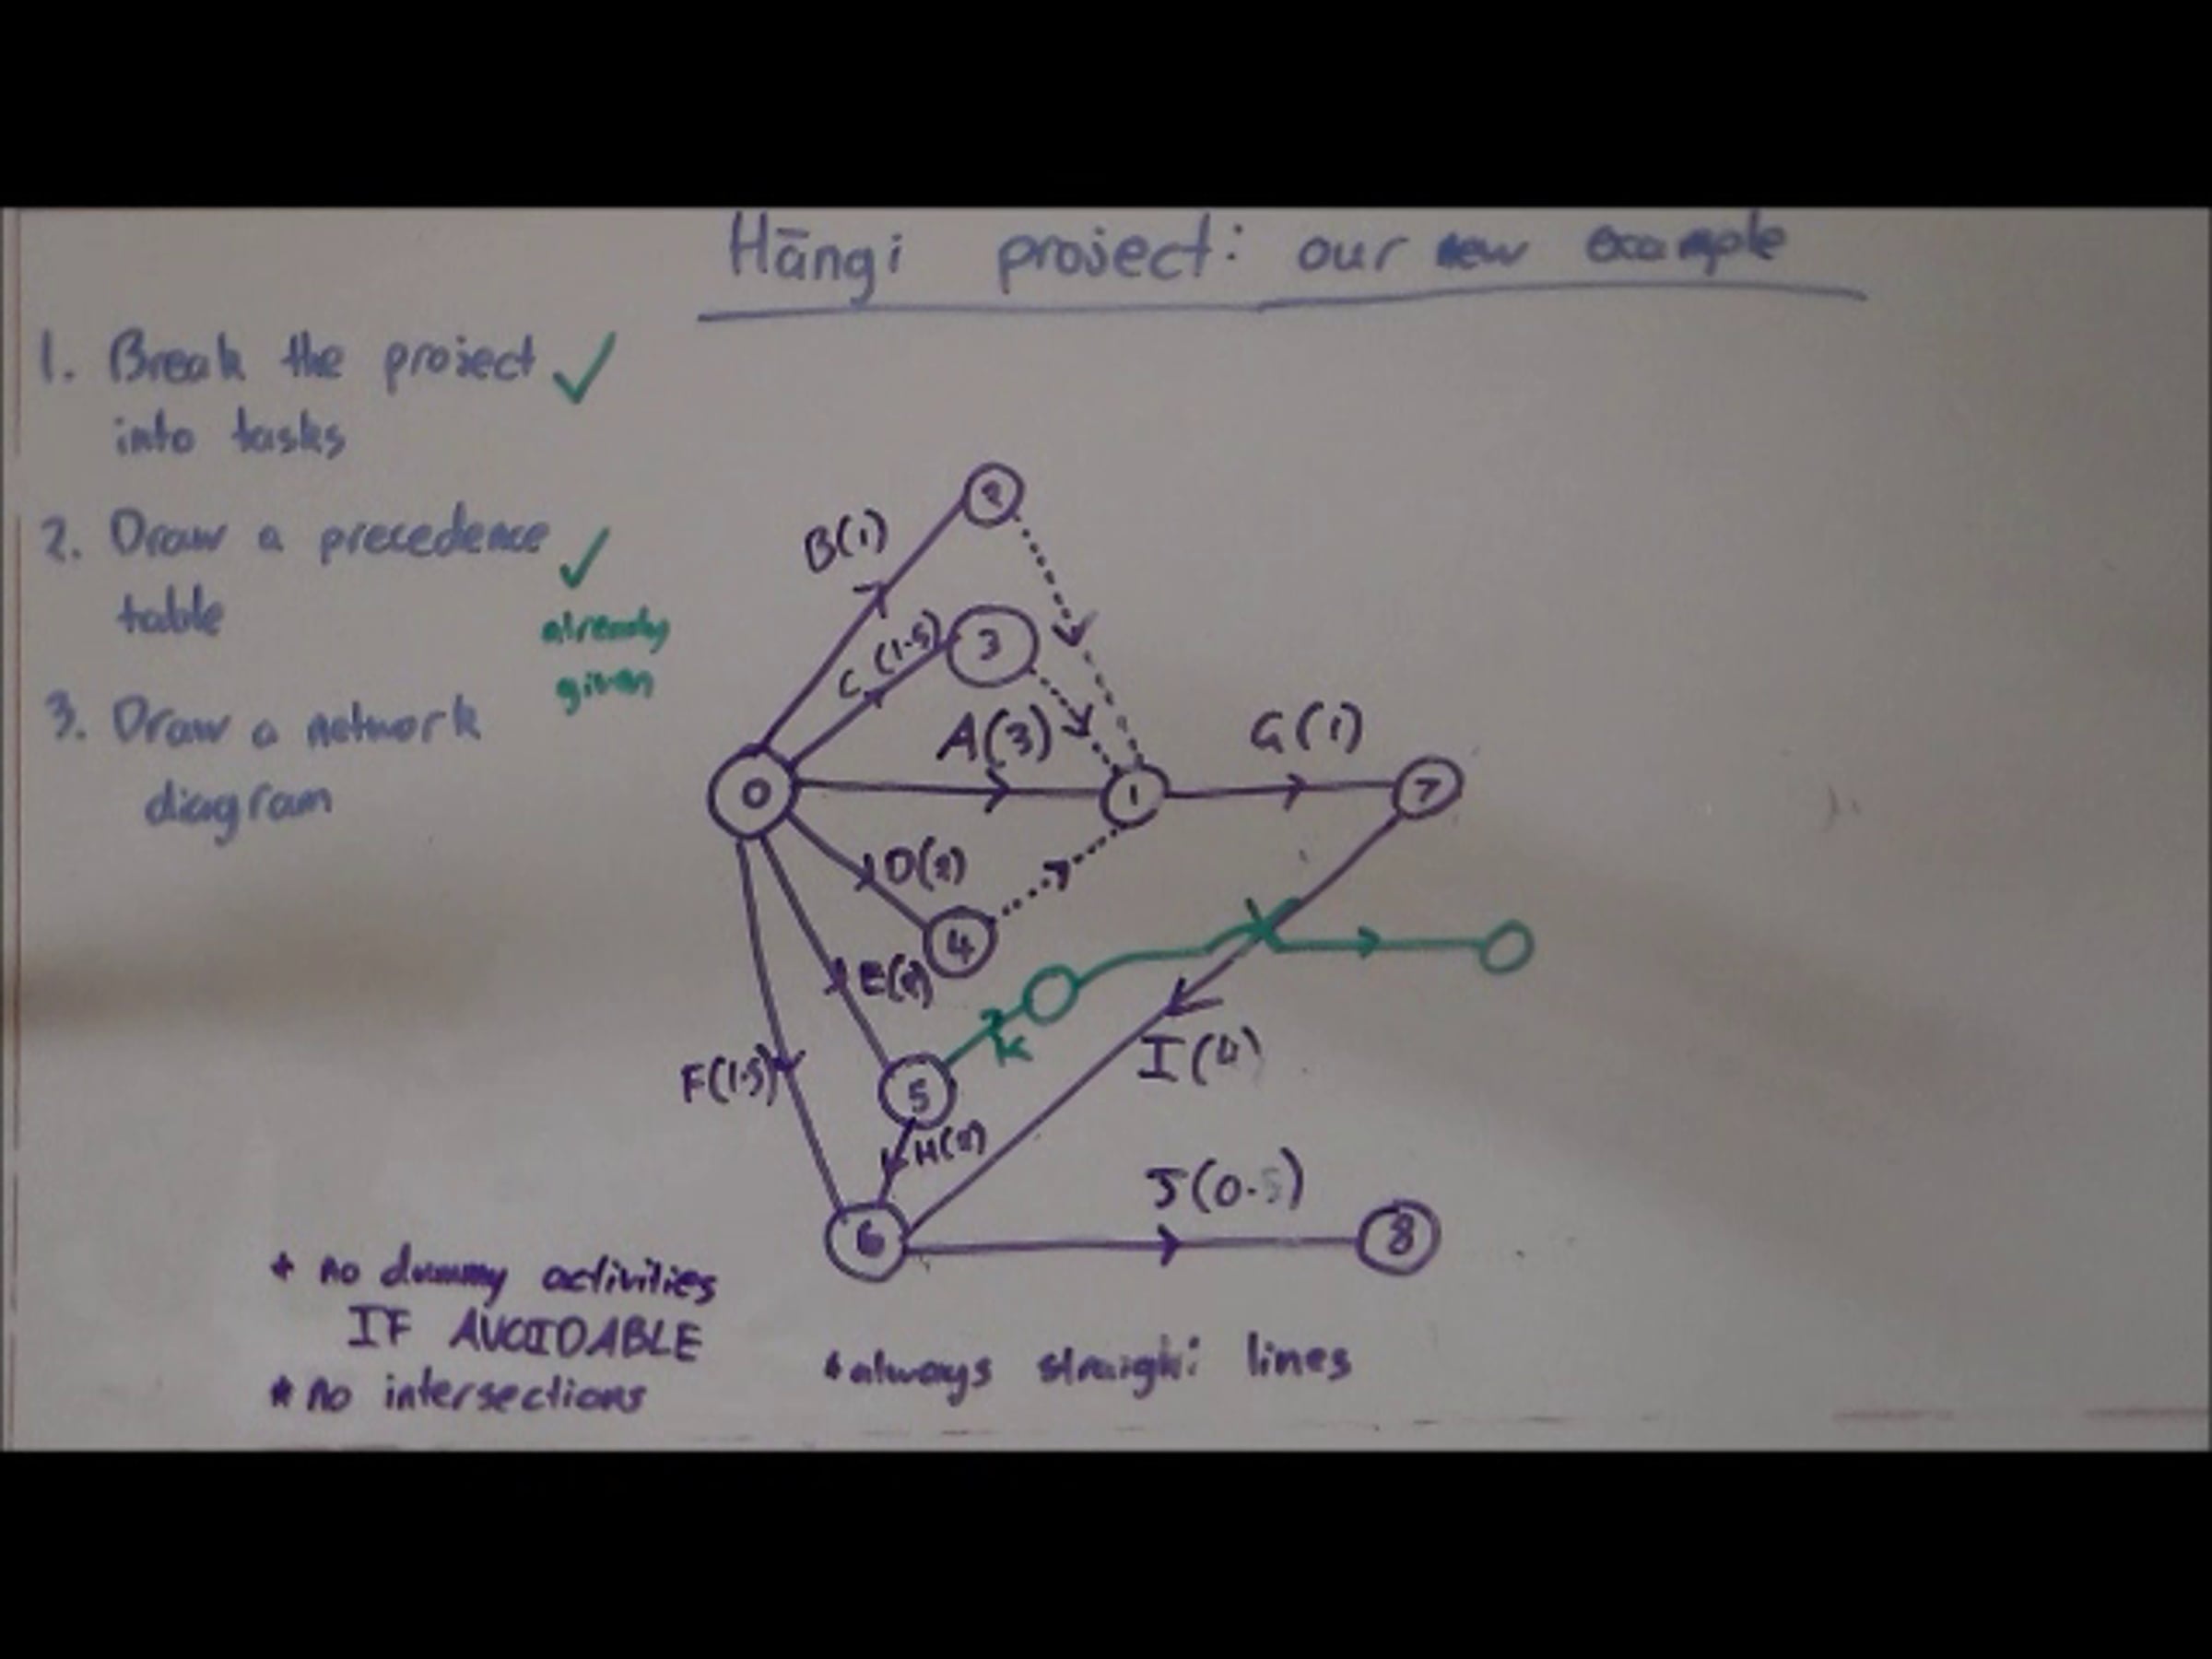 Hāngi project: our new example
1. Break the project
into tasks
2. Draw a precedence
table
already
given
3. Draw a network
diagram
2
B(1)
3
C (1.5)
A(3)
G(1)
0
1
7
D(2)
4
E(2)
K
I(4)
F(1.5)
5
H(2)
J(0.5)
6
8
* no dummy activities
IF AVOIDABLE
* no intersections
* always straight lines